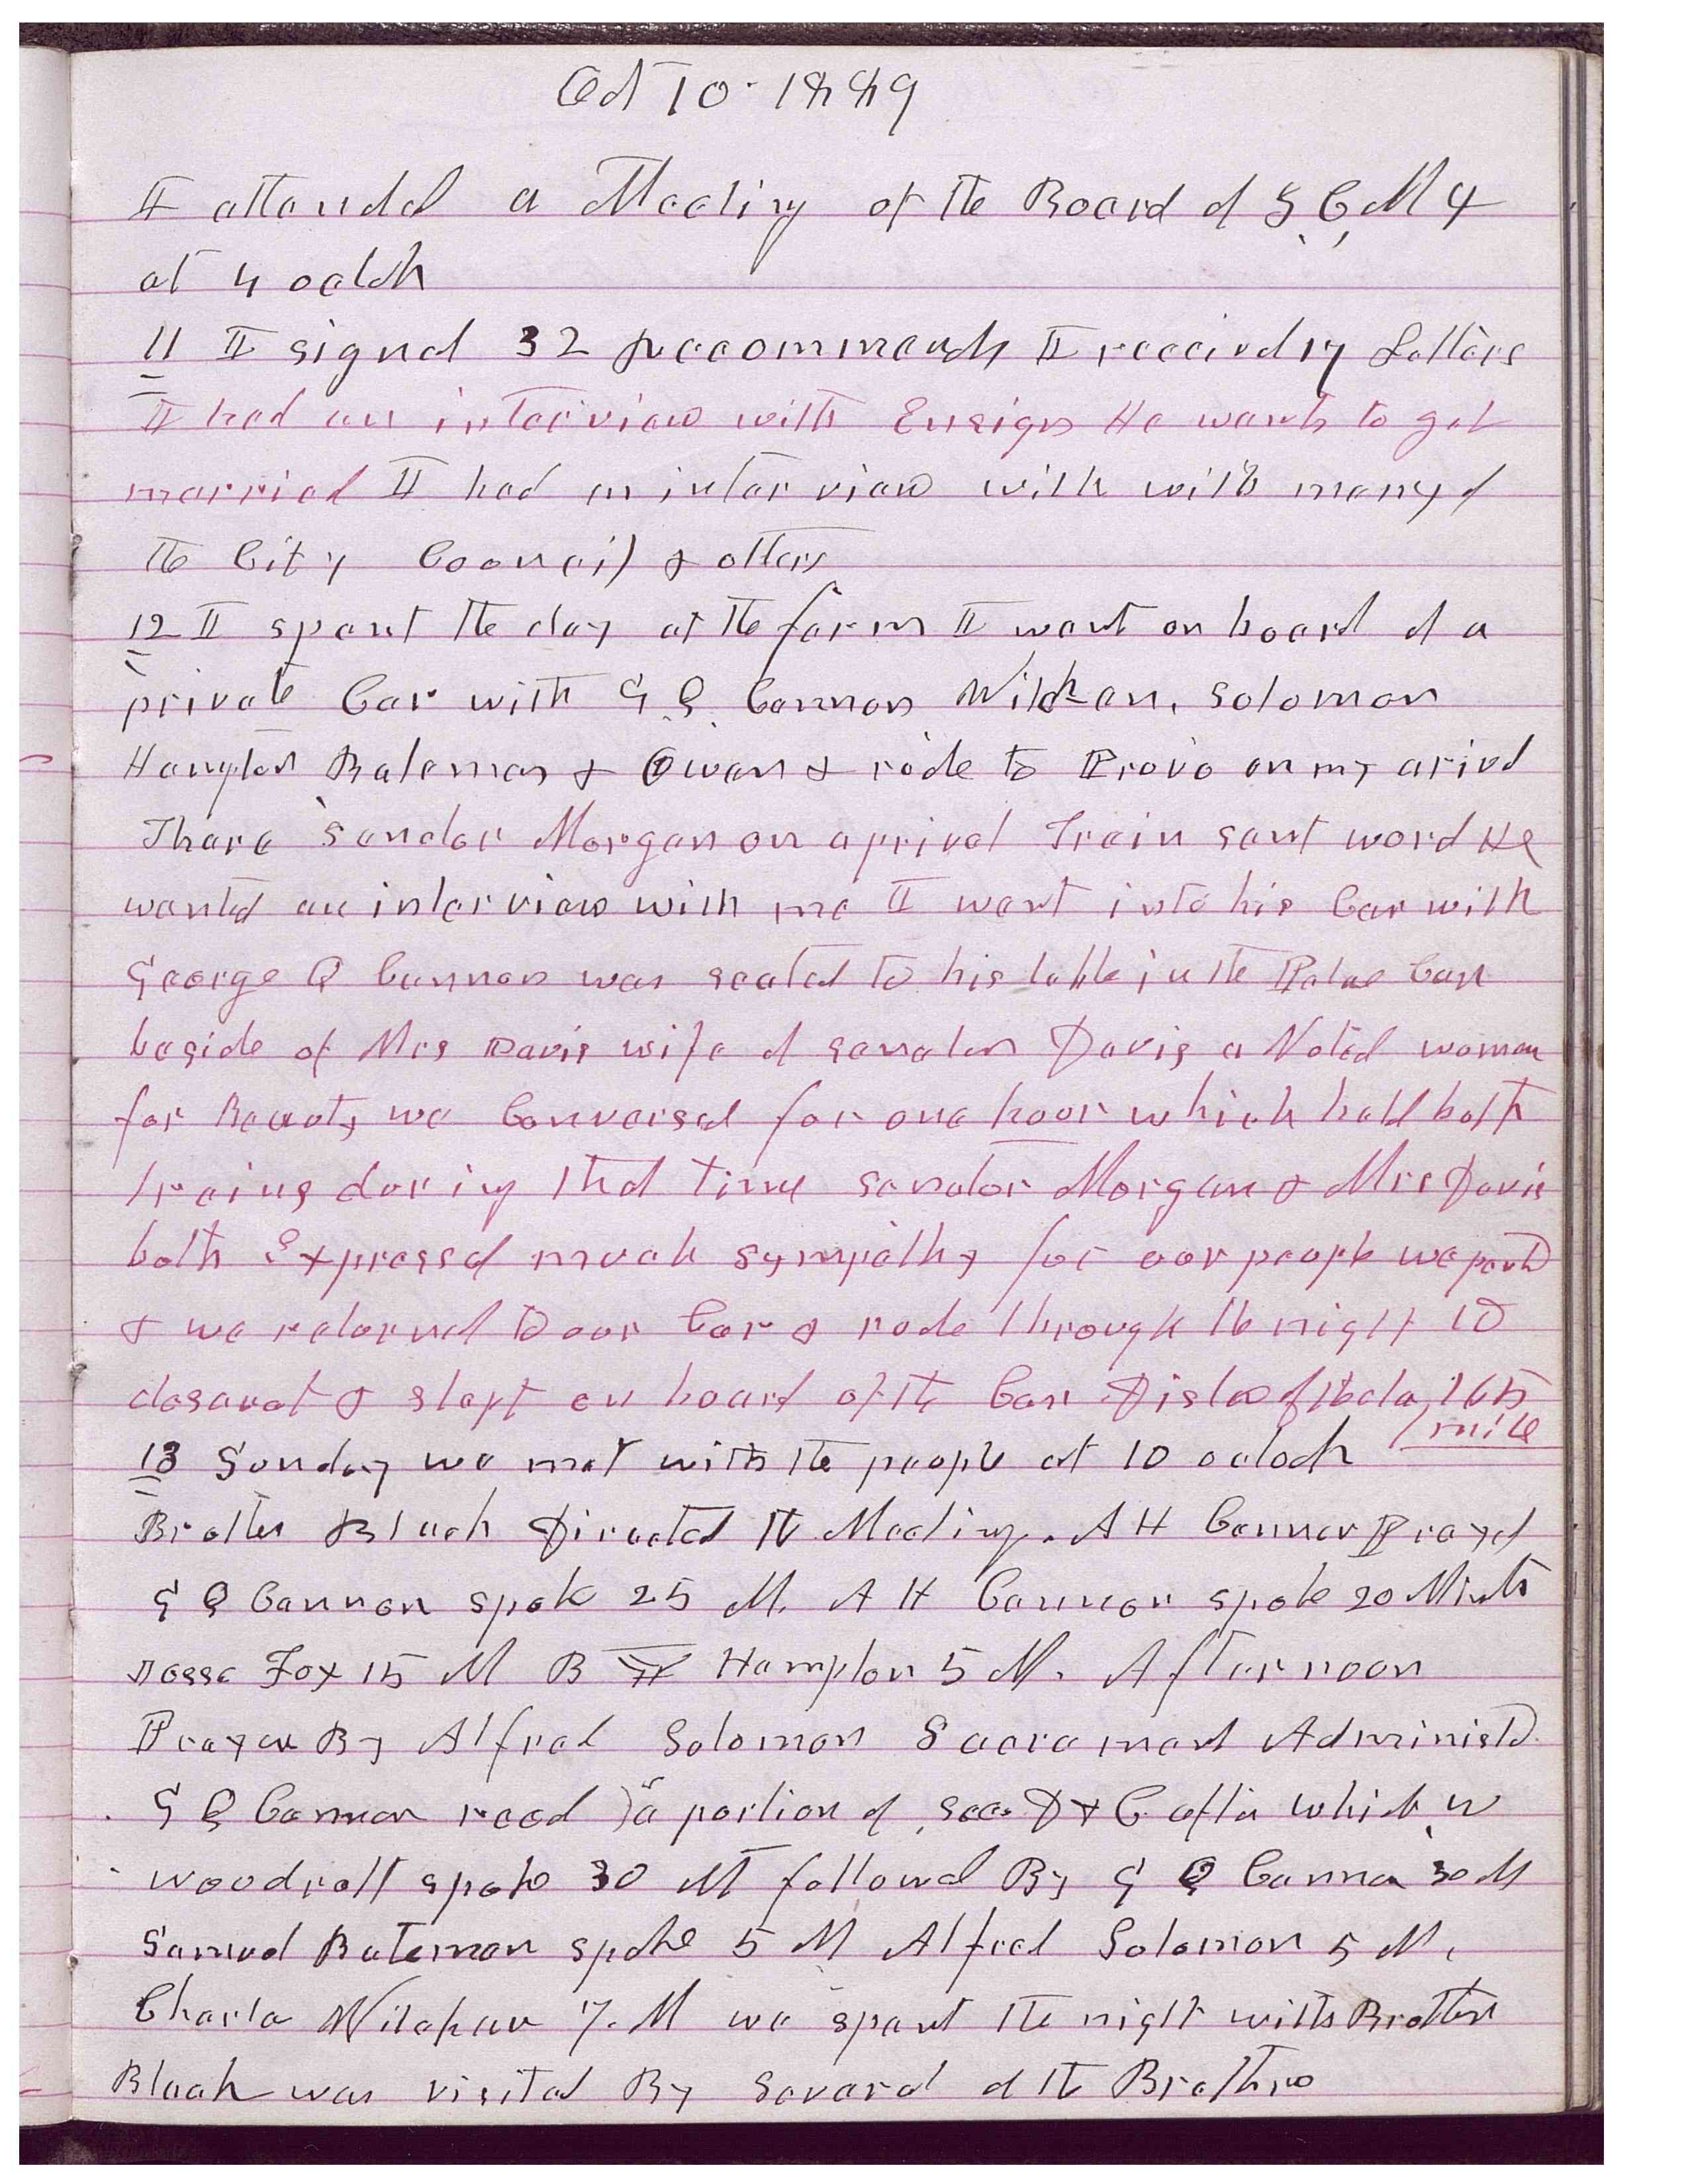 Oct 10 1889
I attended a Meeting of the Board of Z, C, M I
at 4 oclok
11 I signed 32 Reccommends I received 17 Letters
I had an interview with Ensign He wants to get
married I had an interview with with many of
the City Council & others
12 I spent the day at the farm I went on board of a
private Car with G. Q. Cannon Wilcken, Solomon
Hampton Bateman & Owen & rode to Provo on my arived
Thare Senator Morgan on aprivat Train sent word He
wanted an interview with me I went into his Car with
George Q Cannon was seated to his table in the Palac Carr
beside of Mrs Davis wife of senator Davis a Noted woman
for Beauty we Conversed for one hour which held both
trains during that time senator Morgan & Mrs Davis
both Expressed much sympathy for our people we parted
& we returned to our Car & rode through the night to
deseret & slept on board of the Carr Distance of the day 165
mile
13 Sunday we met with the people at 10 oclock
Brother Black Directed the Meeting. A H Cannon Prayed
G Q Cannon spoke 25 M. A H Cannon spoke 20 Minuts
Jesse Fox 15 M B Y Hampton 5 M. Afternoon
Prayer By Alfred Solomon Sacrament Administed
G Q Cannon read a portion of sec. D & C after which W
Woodruff spoke 30 M followed By G Q Cannon 30 M
Samuel Bateman spoke 5 M Alfred Solomon 5 M.
Charles Wilcken 7. M we spent the night with Brother
Black was visited By several of the Brethren